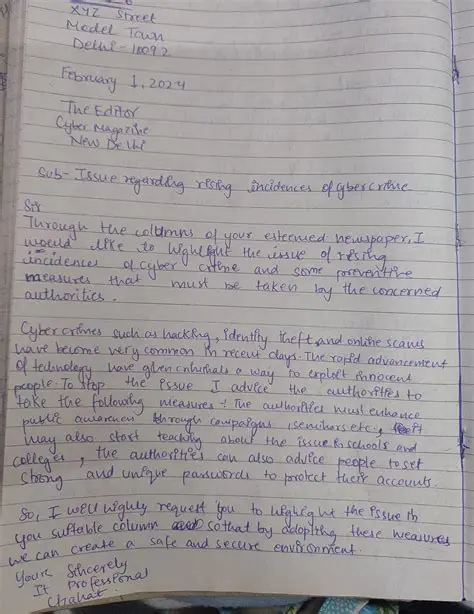 XYZ Street
Model Town
Delhi - 110092
February 1, 2024
The Editor
Cyber Magazine
New Delhi
Sub- Issue regarding rising incidences of cybercrime
Sir
Through the columns of your esteemed newspaper, I
would like to highlight the issue of rising
incidences of cyber crime and some preventive
measures that must be taken by the concerned
authorities.
Cybercrimes such as hacking, identity theft, and online scams
have become very common in recent days. The rapid advancement
of technology have given criminals a way to exploit innocent
people. To stop the issue I advice the authorities to
take the following measures -: The authorities must enhance
public awareness through campaigns, seminars etc.,
may also start teaching about the issue in schools and
colleges, the authorities can also advice people to set
strong and unique passwords to protect their accounts.
So, I will highly request you to highlight the issue in
you suitable column so that by adopting these measures
we can create a safe and secure environment.
Yours Sincerely
It Professional
Chahat.